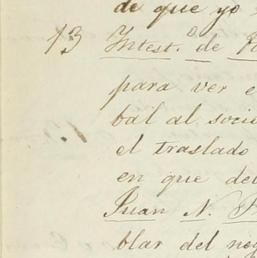 de que yo
13 Intest.º de
para ver e
bal al soci
el traslado
en que de
Juan N.
blar del neg